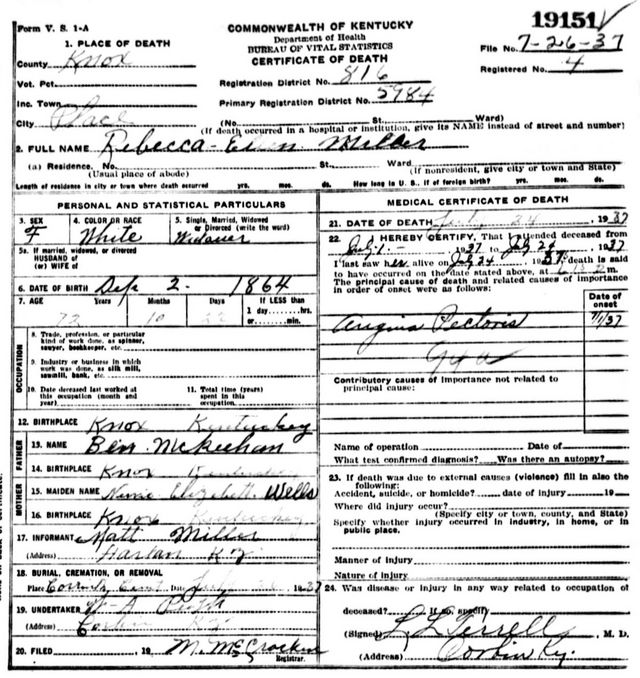 Form V. S. 1-A
COMMONWEALTH OF KENTUCKY
Department of Health
BUREAU OF VITAL STATISTICS
CERTIFICATE OF DEATH
19151
File No. 7-26-37
Registered No. 4
1. PLACE OF DEATH
County Knox
Vot. Pct.
Inc. Town
City Place
Registration District No. 816
Primary Registration District No. 5984
(No. St. Ward)
(If death occurred in a hospital or institution, give its NAME instead of street and number)
2. FULL NAME Rebecca Ellen Miller
(a) Residence. No. St. Ward
(Usual place of abode) (If nonresident, give city or town and State)
Length of residence in city or town where death occurred yrs. mos. ds. How long in U. S., if of foreign birth? yrs. mos. ds.
PERSONAL AND STATISTICAL PARTICULARS
3. SEX 4. COLOR OR RACE 5. Single, Married, Widowed
or Divorced (write the word)
F White Widower
5a. If married, widowed, or divorced
HUSBAND of
(or) WIFE of
6. DATE OF BIRTH Sep 2 - 1864
7. AGE Years Months Days If LESS than
1 day......hrs.
or......min.
72 10 22
OCCUPATION
8. Trade, profession, or particular
kind of work done, as spinner,
sawyer, bookkeeper, etc.
9. Industry or business in which
work was done, as silk mill,
sawmill, bank, etc.
10. Date deceased last worked at
this occupation (month and
year)
11. Total time (years)
spent in this
occupation
12. BIRTHPLACE Knox Kentuckey
FATHER
13. NAME Ben McKeehan
14. BIRTHPLACE Knox
MOTHER
15. MAIDEN NAME Elizabeth Wells
16. BIRTHPLACE Knox
17. INFORMANT Matt Miller
(Address) Harlan Ky
18. BURIAL, CREMATION, OR REMOVAL
Place Date 1937
19. UNDERTAKER W A
(Address) Corbin Ky
20. FILED 19 M. McCracken
Registrar.
MEDICAL CERTIFICATE OF DEATH
21. DATE OF DEATH July 24, 1937
22. I HEREBY CERTIFY, That I attended deceased from
July 1 - 1937 to July 24 1937
I last saw her alive on July 24 1937, death is said
to have occurred on the date stated above, at m.
The principal cause of death and related causes of importance
in order of onset were as follows:
Date of
onset
Angina Pectoris 7/1/37
Contributory causes of importance not related to
principal cause:
Name of operation Date of
What test confirmed diagnosis? Was there an autopsy?
23. If death was due to external causes (violence) fill in also the
following:
Accident, suicide, or homicide? date of injury 19
Where did injury occur?
(Specify city or town, county, and State)
Specify whether injury occurred in industry, in home, or in
public place.
Manner of injury
Nature of injury
24. Was disease or injury in any way related to occupation of
deceased? If so, specify
(Signed) L L Terrell, M. D.
(Address) Corbin Ky.